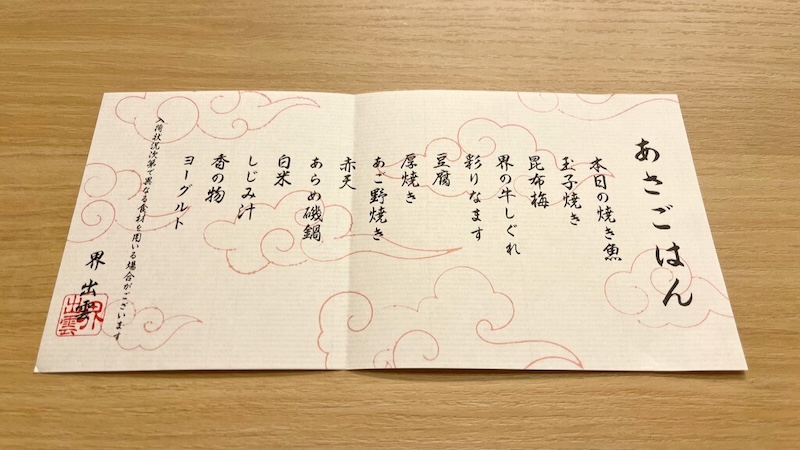 あさごはん
本日の焼き魚
玉子焼き
昆布梅
界の牛しぐれ
彩りなます
豆腐
厚焼き
あご野焼き
赤天
あらめ磯鍋
白米
しじみ汁
香の物
ヨーグルト
入荷状況次第で異なる食材を用いる場合がございます
界 出雲
界
出雲